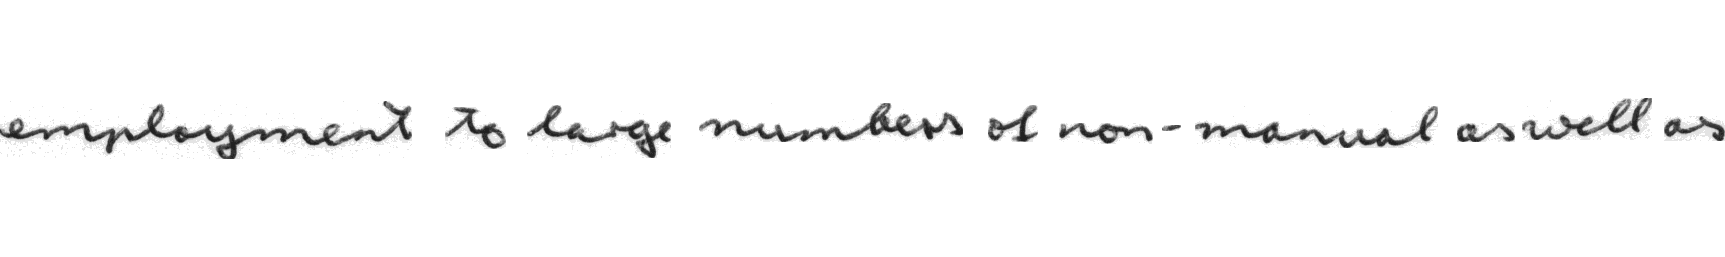 employment to large numbers of non-manual as well as